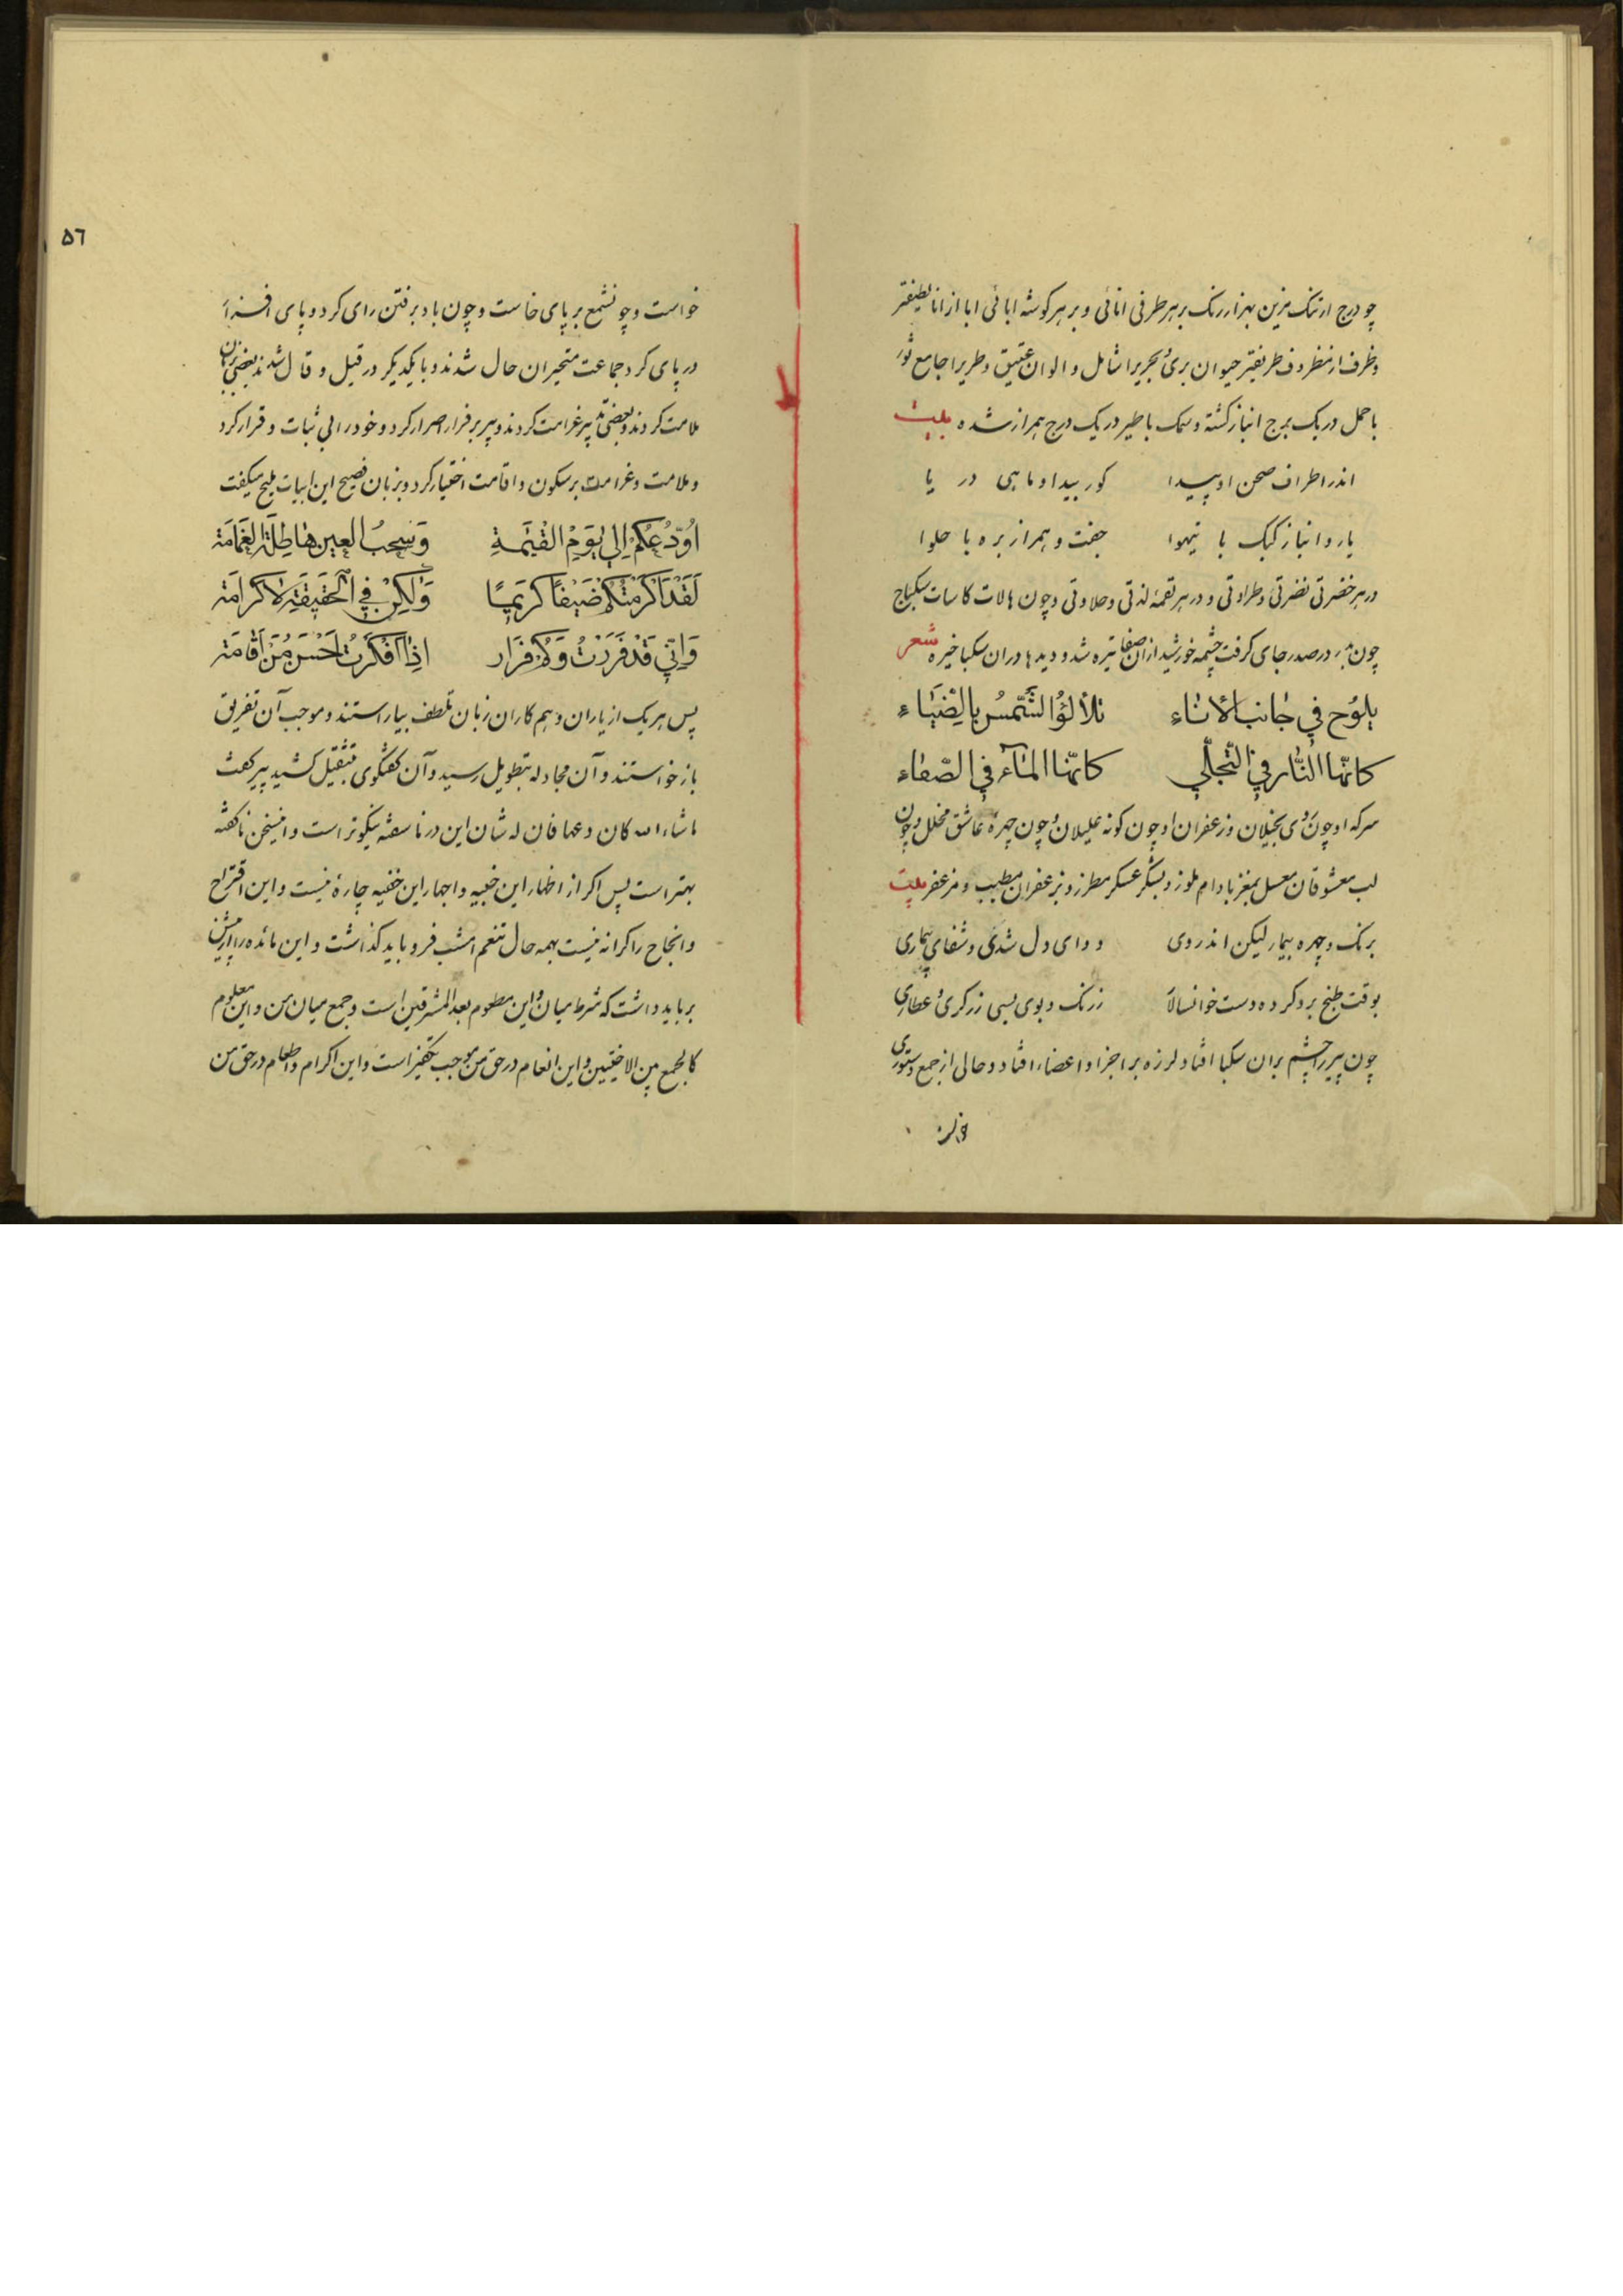 چو درج ارتنک مزین بهزار رنک بر هر طرفی اناثی و بر هر کوشه ابائی ابا از انا لطیفتر
و ظرف از مظروف ظریفتر حیوان بری و بحریرا شامل و الوان عتیق و طریرا جامع ثور
با حمل در یک برج انباز کشته و سمک با طیر در یک درج همراز شده بیت
اندر اطراف صحن او پیدا کور بیدا و ماهی در یا
یار و انباز کبک با تیهوا جفت و همراز بره با حلوا
در هر خضرتی نضرتی و طراوتی و در هر لقمهٔ لذتی و حلاوتی و چون هالات کاسات سکباج
چون در صدر جای کرفت چشمه خورشید از ان صفا تیره شد و دیدها در ان سکبا خیره شعر
یلوح في جانب الاناء تلألؤ الشمس بالضياء
كانها النار في التجلي كانها الماء في الصفاء
سرکه او چون روی بخیلان و زعفران او چون کونه علیلان و چون چهرهٔ عاشق مخلل و چون
لب معشوقان معسل بمغز بادام ملوز و بشکر عسکر مطرز و بزعفران مطیب و مزعفر بیت
برنک و چهره بیمار لیکن اندر وی دوای دل شدی و شفای بیماری
بوقت طبخ برو کرده دست خوانسالار ز رنک و بوی بسی زرکری و عطاری
چون پیر را چشم بران سکبا افتاد لرزه بر اجزا و اعضاء افتاد و حالی از جمع دستوری
خواست
٥٦
خواست و چو نشمع بر پای خاست و چون باد برفتن رای کرد و پای افسزا
در پای کرد جماعت متحیران حال شدند و با یکدیکر در قیل و قال شدند بعضی بزبان
ملامت کردند و بعضی پیر غرامت کردند و پیر بر فرار اصرار کرد و خود را بی ثبات و قرار کرد
و ملامت و غرامت بر سکون و اقامت اختیار کرد و بزبان فصیح این ابیات ملیح میکفت
أودعكم الى يوم القيمة وسحب العين هاطلة الغمامة
لقد اكرمتكم ضيفا كريما ولكن في الحقيقة لا كرامة
واني قد فررت وكم فرار اذا افكرت احسن من اقامة
پس هر یک از یاران و هم کاران زبان تلطف بیاراستند و موجب آن تفریق
باز خواستند و آن مجادله بتطویل رسید و آن کفتکوی بتثقیل کشید پیر کفت
ما شاء الله کان دعها فان له شان این در ناسفته نیکوتر است و این سخن ناکفته
بهتر است پس اکر از اظهار این خبیه و اجهار این خفیه چارهٔ نیست و این اقتراح
و انجاح را کرانه نیست بهمه حال تنعم امشب فرو باید کذاشت و این مائده را از پیش
بر باید داشت که شرط میان و این مطعوم بعد المشرقین است و جمع میان من و این معلوم
کالجمع بین الاختین و این انعام در حق من موجب تکفیر است و این اکرام و اطعام در حق من